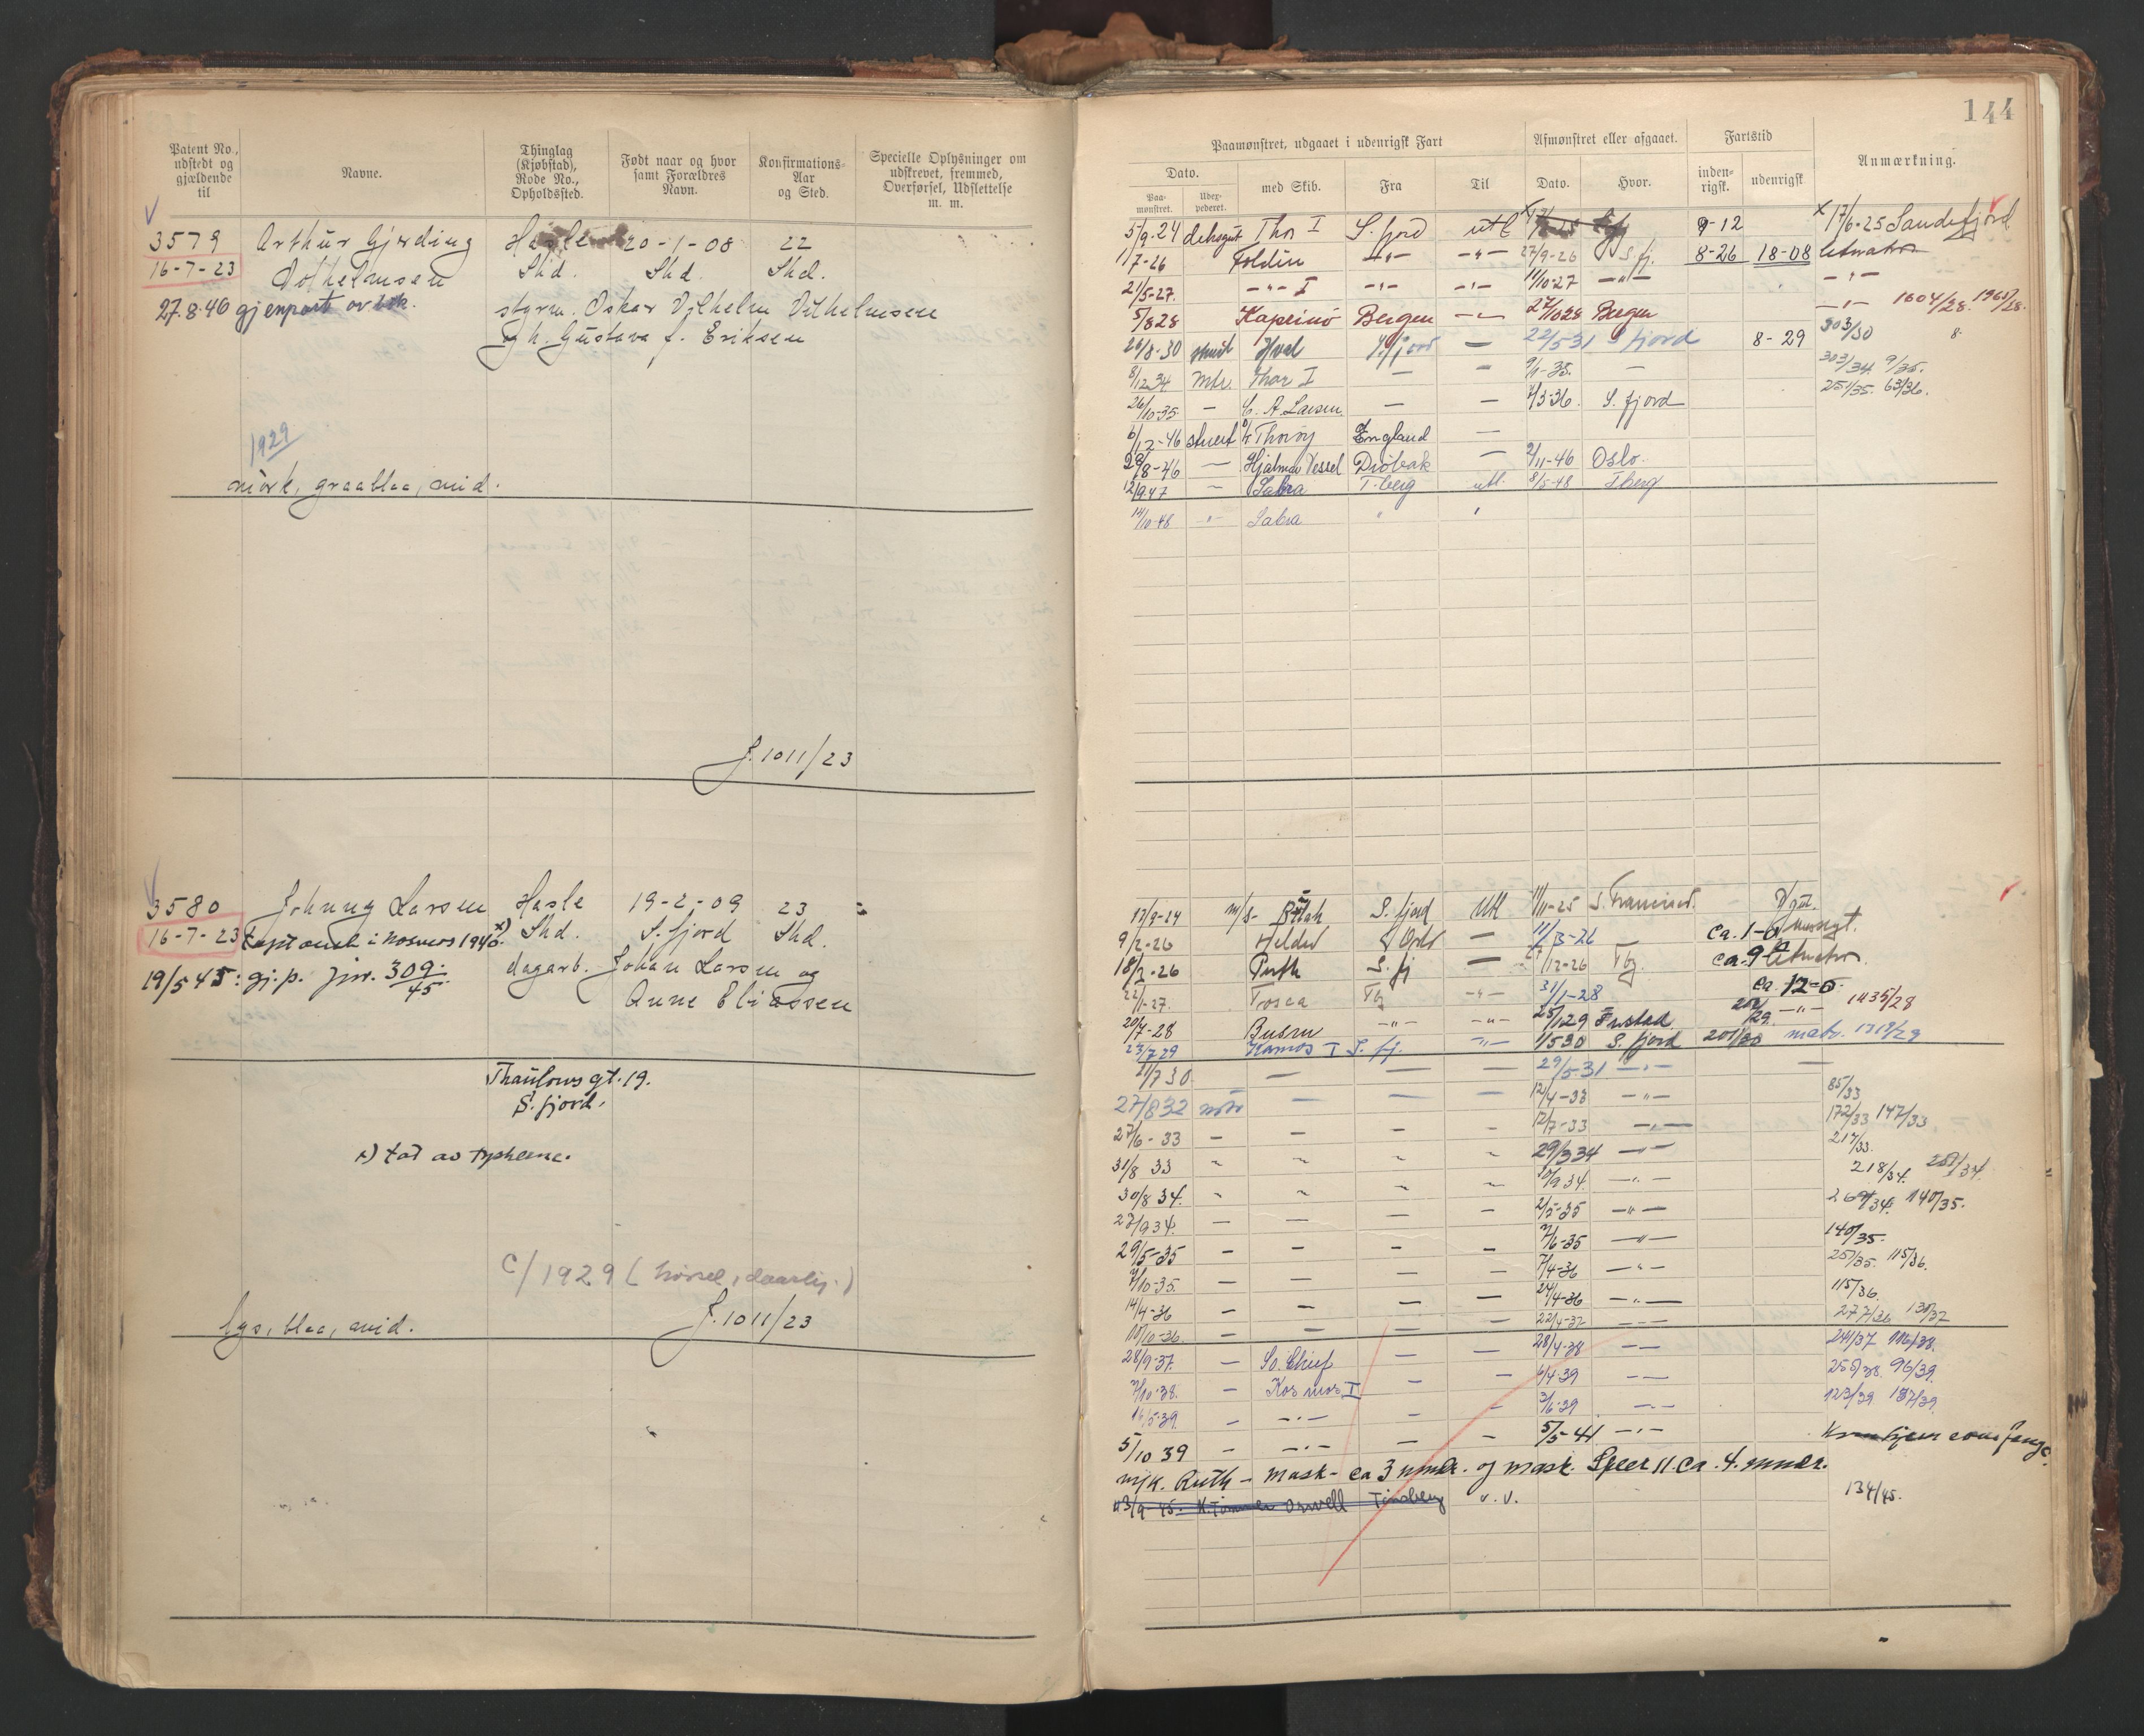 144
Patent No., udstedt og gjældende til
Navne.
Thinglag (Kjøbstad), Rode No., Opholdssted.
Født naar og hvor samt Forældres Navn.
Konfirmations-Aar og Sted.
Specielle Oplysninger om udskrevet, fremmed, Overførsel, Udslettelse m. m.
Paamønstret, udgaaet i udenrigsk Fart
Afmønstret eller afgaaet.
Fartstid
Anmærkning.
Dato.
Paa-mønstret.
Udex-pederet.
med Skib.
Fra
Til
Dato.
Hvor.
inden-rigsk.
udenrigsk
3579 Arthur Gjerding Hasle 20-1-08 22
16-7-23 Vilhelmsen Shd. Shd. Shd.
27.8.40 gjenpart av bok. styrm. Oskar Vilhelm Vilhelmsen
og h. Gustava f. Eriksen
1929
mørk, graablaa, mid.
J. 1011/23
3580 Johnny Larsen Hasle 19-2-09 23
16-7-23 tapt ansk i Kosmos 1940 x) Shd. S. fjord Shd.
19/5 45: gj.p. jnr. 309/45. dagarb. Johan Larsen og
Anne Eliassen
Thaulows gt. 19.
S. fjord.
x) tat av tyskerne.
C/1929 (hørsel, daarlig.)
lys, blaa, mid. J. 1011/23
5/9-24 deksgut Thor I S. fjord utl 9-12 x 17/6-25 Sandefjord
1/7-26 Foldin -"- -"- 27/9-26 S. fj. 8-26 18-08
21/5-27. -"- I -"- -"- 11/10-27 -"- -"-
5/8 28 Kaprino Bergen -"- 27/10 28 Bergen -"- 1604/28. 1960/28.
26/8-30 Hval S. fjord — 22/5-31 S fjord 8-29 303/30
8/12 34 Mtr. Thor I — — 9/1-35. — 303/34 9/35.
26/10-35. — C. A. Larsen — — 7/3-36. S. fjord 251/35. 63/36.
6/12-46 stuert Thorøy England —
28/8-46 — Hjalmar Wessel Drøbak — 2/11-46 Oslo.
12/9 47 — Sabra T.berg utl. 8/5-48 Tberg
14/10-48 -"- Sabra " "
12/9-24 m/s S. fjord Utl 11/11-25 S. Francisco.
9/2-26 Oslo — 11/3-26 ca. 1-0
18/2-26 Ruth S. fj — /12-26 Tbg. ca. 9
22/1-27. Tosca Tbg -"- 31/1-28 ca. 12-5-
20/7-28 Busen -"- -"- 25/1 29 -"- 1435/28
23/7 29 Kosmos I S. fj. -"- 1/5 30 S. fjord 201/30 matr.
21/7 30. — — — 29/5-31 -"- —
27/8 32 motr — — — 12/4-33 -"- 85/33
27/6-33 — — — — 12/7-33 -"- 172/33 147/33
31/8 33 ~ ~ ~ ~ 29/3 34 -"- 217/33.
30/8 34. ~ ~ ~ ~ 10/9 34. -"- 218/34. 251/34.
23/9 34. — — — — 2/5-35 -"- 269/34. 140/35.
29/5-35 — — — — 7/6-35 -"- 140/35.
7/10-35. — — — — 7/4-36 -"- 257/35. 115/36.
14/4-36 — — — — 24/4-36 -"- 115/36.
10/10-36. — — — — 22/4-37 -"- 277/36 130/37
28/9-37. — So. Chief — — 28/4-38 -"- 241/37 116/38.
7/10-38. — Kosmos II — — 6/4-39 -"- 255/38. 96/39.
16/5-39. — -"- — — 3/6-39 -"- 123/39 187/39.
5/10 39 — -"- — — 5/5-41 -"-
Ruth - mask - ca 3 mndr. og mask. Speer II. ca. 4. mndr.
3/9-45. K. Tømmer Orwell Tønsberg u. v. 134/45.